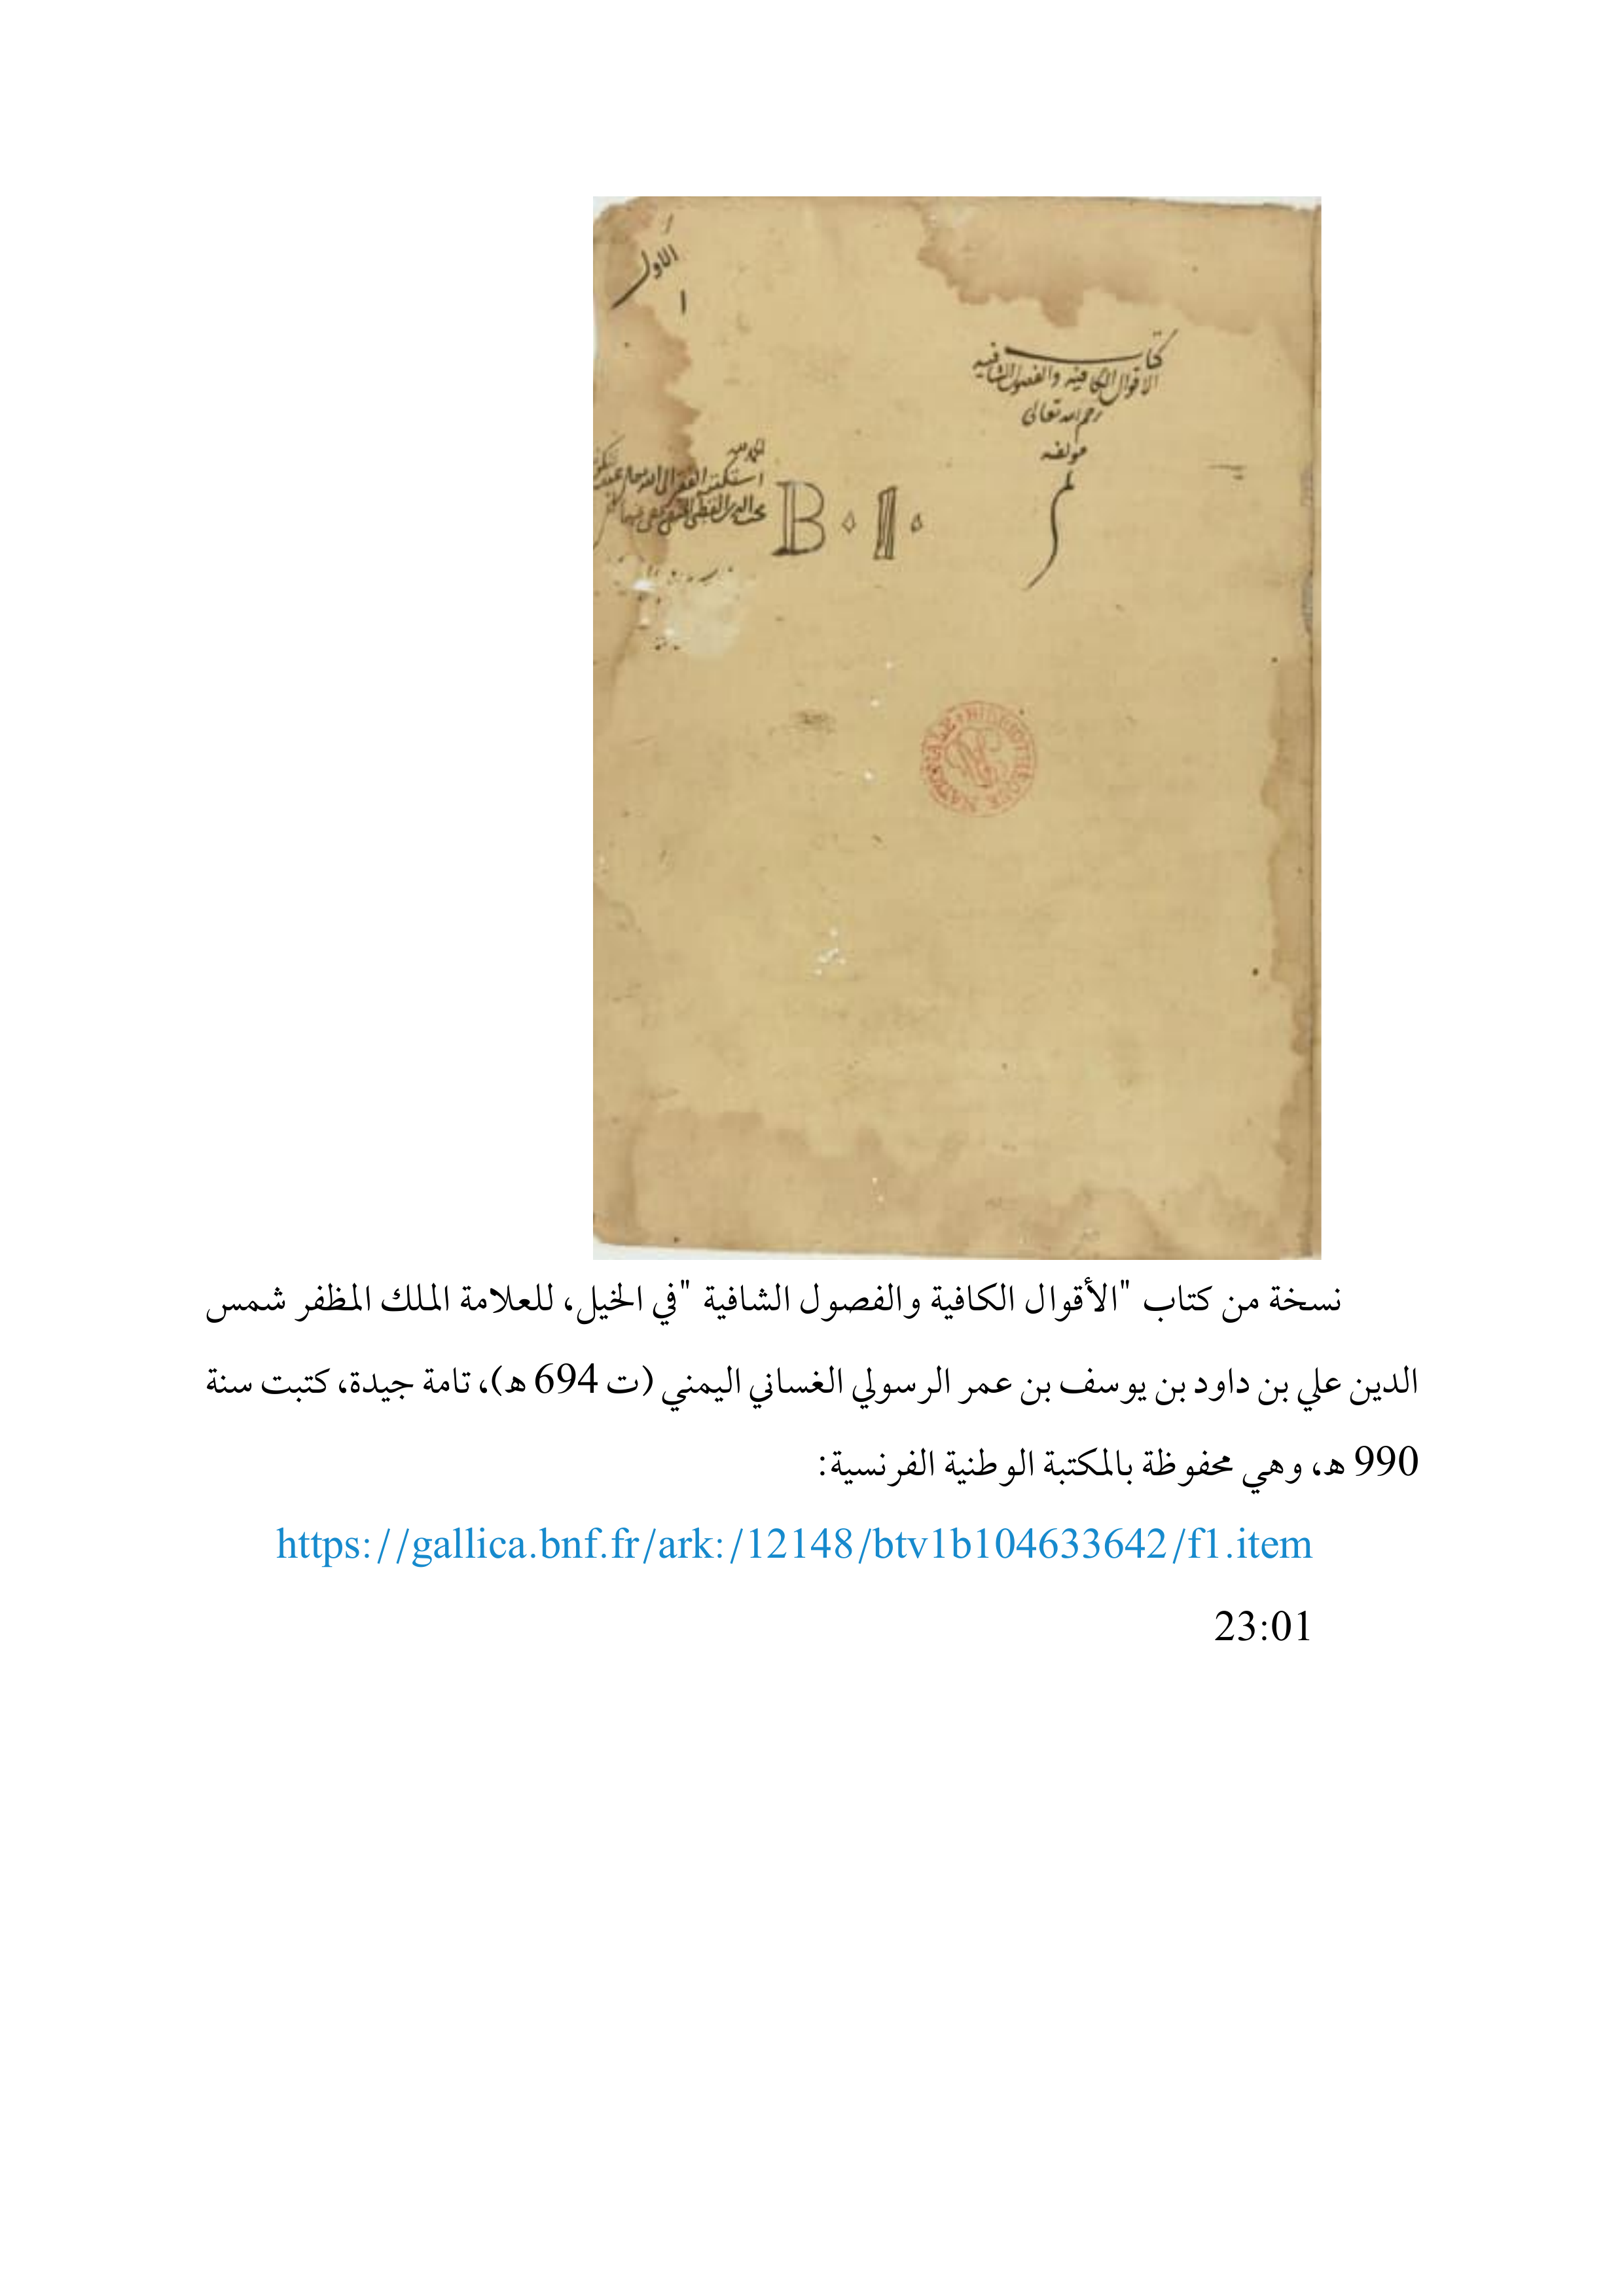 الاول
١
كتاب
الاقوال الكافيه والفصول الشافيه
رحم الله تعالى
مولفه
الحمد لله
استكتبه الفقير الى الله
B 1
BIBLIOTHEQUE NATIONALE
نسخة من كتاب "الأقوال الكافية والفصول الشافية "في الخيل، للعلامة الملك المظفر شمس
الدين علي بن داود بن يوسف بن عمر الرسولي الغساني اليمني (ت 694 هـ)، تامة جيدة، كتبت سنة
990 هـ، وهي محفوظة بالمكتبة الوطنية الفرنسية:
https://gallica.bnf.fr/ark:/12148/btv1b104633642/f1.item
23:01